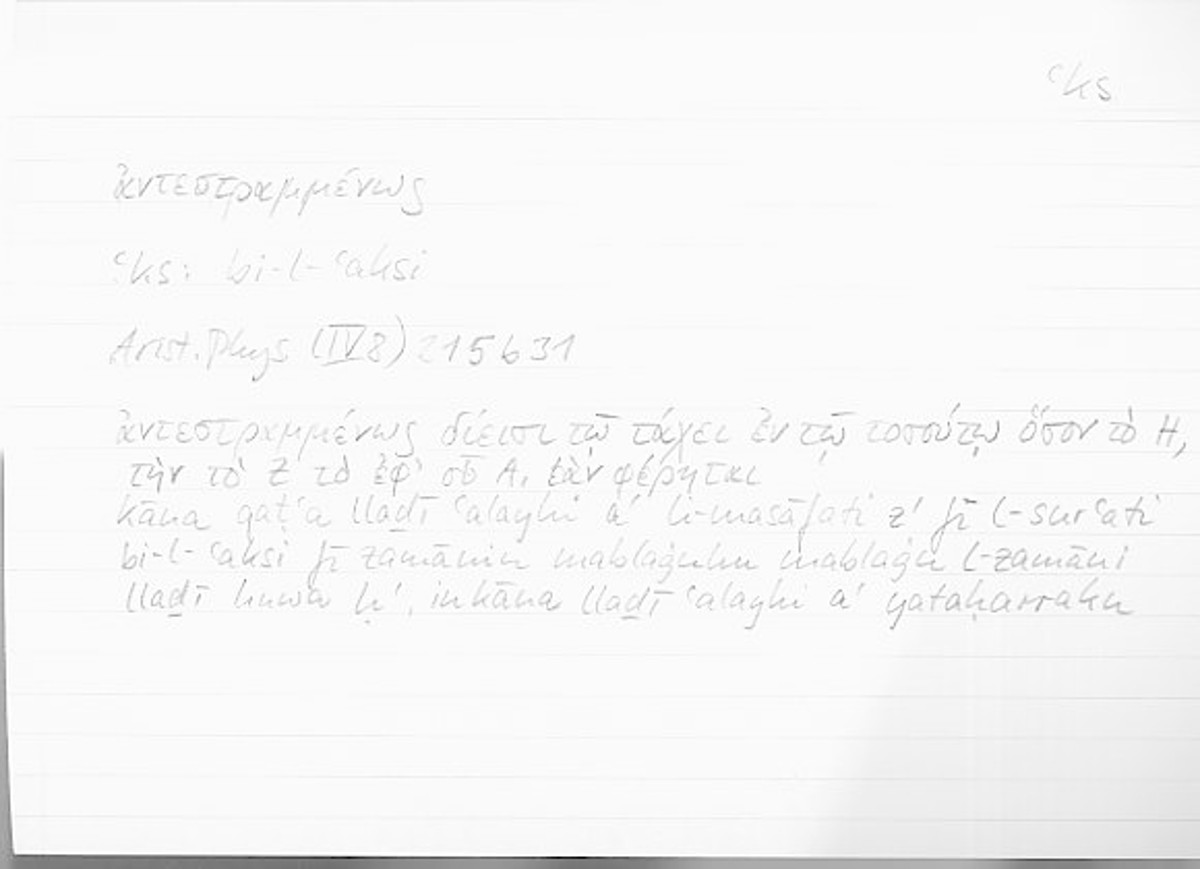 ʿks
ἀντεστραμμένως
ʿks: bi-l-ʿaksi
Arist. Phys (IV 8) 215b31
ἀντεστραμμένως δίεισι τῷ τάχει ἐν τῷ τοσούτῳ ὅσον τὸ H,
τὴν τὸ Z τὸ ἐφ' οὗ A, ἐὰν φέρηται
kāna qaṭʿa llaḏī ʿalayhi a' li-masāfati z' fī l-surʿati
bi-l-ʿaksi fī zamānin mablaġuhu mablaġu l-zamāni
llaḏī huwa ḥ', in kāna llaḏī ʿalayhi a' yataḥarraku